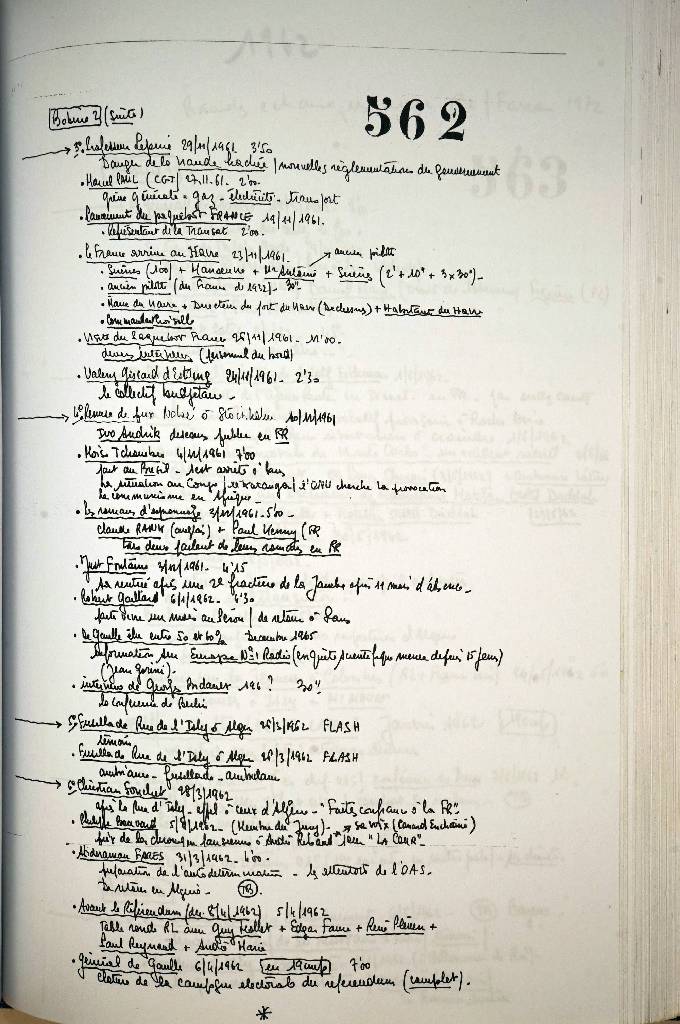 562
Bobine 2 (suite)
3° Professeur Lepine 29/11/1961 3'50
Danger de la viande hachée / nouvelles règlementations du gouvernement
• Marcel PAUL (CGT) 27.11.61. 2'00
grève générale = gaz - électricité - transport
• Lancement du paquebot FRANCE 19/11/1961.
• Représentant de la Transat 2'00.
• le France arrive au Havre 23/11/1961. → ancien pilote
• Sirènes (1'00) + + Mr Antoine + Sirènes (2' + 10" + 3 x 30") -
• ancien pilote (du France de 1932) - 30"
• Maire du Havre + Directeur du port du Havre + Habitant du Havre
• Commandant
• Visite du Paquebot France 25/11/1961 - 11'00.
divers interviews (personnel du bord)
• Valery Giscard d'Estaing 24/11/1961 - 2'30
le collectif budgétaire -
4° Remise du prix Nobel à Stockholm 10/12/1961
Ivo Andrik discours publie en FR
• Moïse Tchombe 4/12/1961 7'00
part au Bresil - s'est arrêté à Paris
La situation au Congo / le Katanga / l'ONU cherche la provocation
le communisme en Afrique -
• les romans d'espionnage 3/12/1961 - 5'00 -
Claude RANK + Paul Kenny (FR
tous deux parlent de leurs romans en FR
• Just Fontaine 3/12/1961 - 4'15
Sa rentrée après une 2e fracture de la Jambe après 11 mois d'absence -
• Robert Gaillard 6/1/1962 - 4'30
parti vivre un mois au / de retour à Paris
• De Gaulle élu entre 50 et 60% Decembre 1965
Information sur Europe N°1 Radio (enquête scientifique menée depuis 15 jours)
(Jean Gorini).
• interview de Georges Bidault 196 ? 30"
la conférence de Berlin
5° Fusillade Rue de l'Isly à Alger 26/3/1962 FLASH
témoin
• Fusillade Rue de l'Isly à Alger 26/3/1962 FLASH
ambiance - fusillade - ambulance
6° Christian Fouchet 28/3/1962
après la Rue d'Isly - appel à ceux d'Alger - "Faites confiance à la FR" -
• Philippe Bouvard 5/ /1962 - (Membre du Jury) - → sa voix (Canard Enchainé)
prix de la chronique parisienne à André Ribaud pour "LA COUR" -
• Abderaman FARES 31/3/1962 - 4'00 -
preparation de l'autodetermination - les attentats de l'OAS -
De retour en Algérie - (TB).
• Avant le Référendum (du 8/4/1962) 5/4/1962
Table ronde RL avec Guy Mollet + Edgar Faure + René Pleven +
Paul Reynaud + André Marie
• général de Gaulle 6/4/1962 7'00
cloture de la campagne electorale du referendum (complet).
*